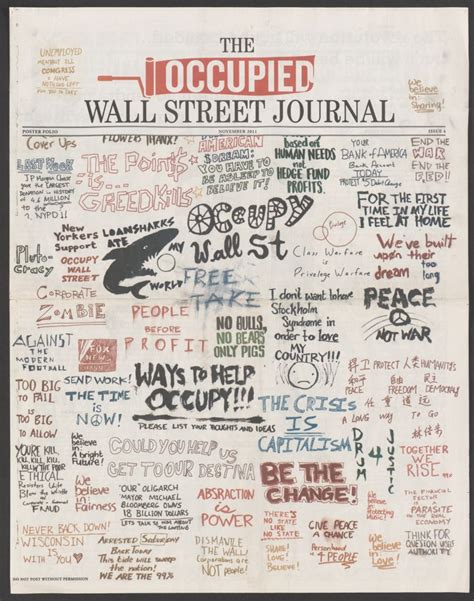 THE
OCCUPIED
WALL STREET JOURNAL
POSTER FOLIO
NOVEMBER 2011
ISSUE 4
UNEMPLOYED
CONGRESS
NOTHING LEFT
We
believe
in
Sharing!
Cover Ups
FLOWERS THANX!
JP Morgan Chase
gave the LARGEST
DONATION in HISTORY
to the
NYPD!!
The Point$
is...
GREEDKills
AMERICAN
DREAM:
YOU HAVE TO
BE ASLEEP TO
BELIEVE IT!
based on
HUMAN NEEDS
not
HEDGE FUND
PROFITS.
YOUR
BANK of AMERICA
Bank Against
America
TODAY
PROTEST
END THE
WAR
END the
FED
FOR THE FIRST
TIME IN MY LIFE
I FEEL AT HOME
New
Yorkers
Support
OCCUPY
WALL
STREET
LOANSHARKS
ATE
MY
WORLD
OCCUPY
Wall St
Privilege
Class Warfare
is
Privelege Warfare
We've built
upon their
dream too
long
Pluto-
cracy
CORPORATE
ZOMBIE
FREE
TAKE
PEOPLE
BEFORE
PROFIT
NO BULLS,
NO BEARS
ONLY PIGS
I don't want to have
Stockholm
Syndrome in
order to love
MY
COUNTRY!!!
PEACE
NOT WAR
AGAINST
THE
MODERN
FOOTBALL
FOX
NEWS
WAYS TO HELP
OCCUPY!!!
PLEASE LIST YOUR THOUGHTS AND IDEAS
捍卫 PROTECT 人类 HUMANITY
和平 PEACE 自由 FREEDOM 民主 DEMOCRACY
任重道远
A LONG WAY TO GO
TOO BIG
TO FAIL
IS
TOO BIG
TO ALLOW
SEND WORK!
THE TIME
is
NOW!
THE CRISIS
IS
CAPITALISM
DRUM
4
JUSTICE
TOGETHER
WE
RISE
YOU'RE
KILL, KILL, KILL,
KILL'N THE POOR
We
believe
in
A bright
Future!
COULD YOU HELP US
GET TO OUR DESTINA
ETHICAL
Blow the Whistle
on
FRAUD
We
believe
in
Fairness
"OUR" OLIGARCH
MAYOR MICHAEL
BLOOMBERG OWNS
18 BILLION DOLLARS
LET'S TALK
ABSRACTION
is
POWER
BE THE
CHANGE!
We
believe
in
Protecting
THE FINANCIAL
SECTOR
is
PARASITE
ON THE REAL
ECONOMY
NEVER BACK DOWN!
WISCONSIN
IS WITH
YOU
ARRESTED Saturday
Back Today
This tide will sweep
the nation!
WE ARE THE 99%
DISMANTLE
THE WALL!
Corporations are
NOT people!
THERE'S
NO STATE
LIKE
NO STATE
SHARE!
LOVE!
GIVE PEACE
A CHANCE
Personhood
4 PEOPLE
THINK FOR
YOURSELF
QUESTION
AUTHORITY
DO NOT POST WITHOUT PERMISSION